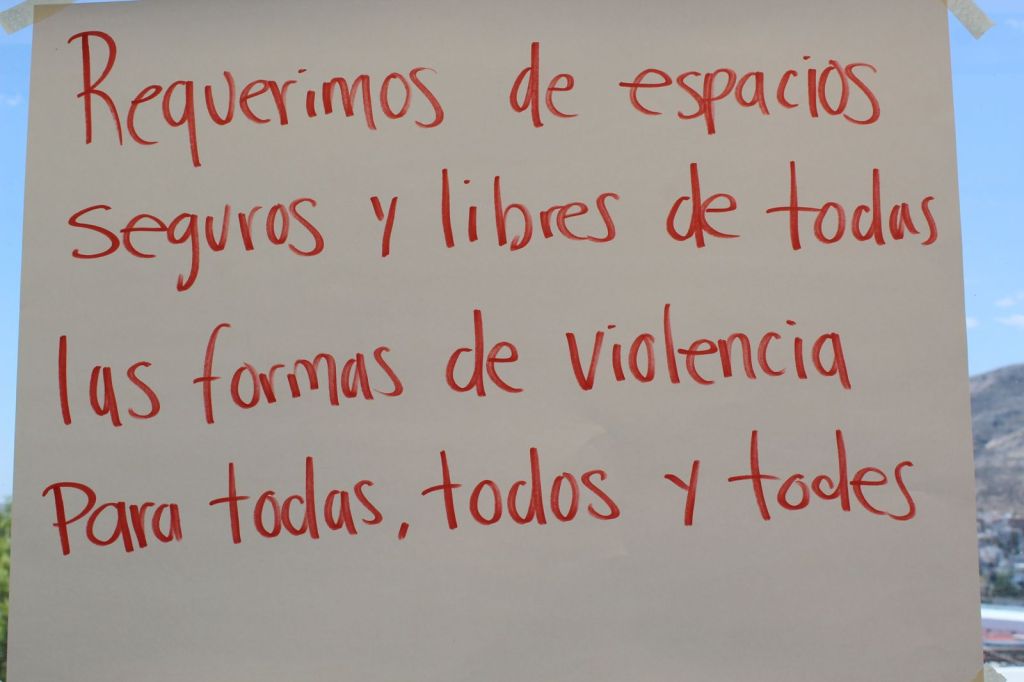 Requerimos de espacios
seguros y libres de todas
las formas de violencia
Para todas, todos y todes